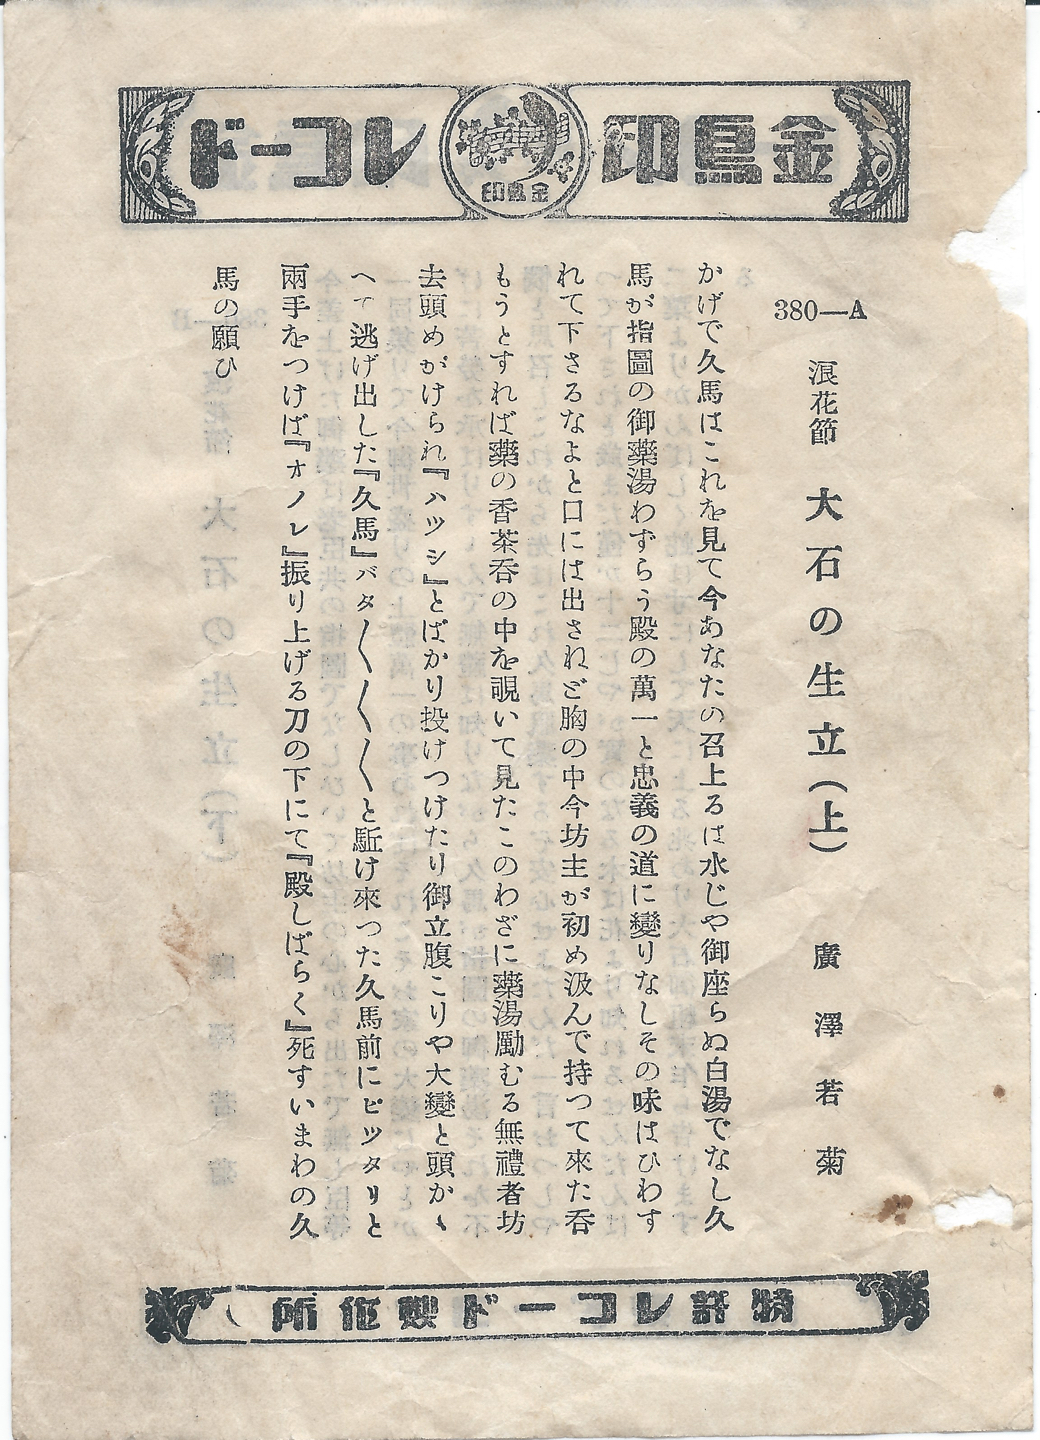 金鳥印
金鳥印
レコード
380—A
浪花節　大石の生立（上）　廣澤若菊
かげで久馬はこれを見て今あなたの召上るは水じや御座らぬ白湯でなし久
馬が指圖の御藥湯わずらう殿の萬一と忠義の道に變りなしその味はひわす
れて下さるなよと口には出されど胸の中今坊主が初め汲んで持つて來た呑
もうとすれば藥の香茶呑の中を覗いて見たこのわざに藥湯勵むる無禮者坊
去頭めがけられ『ハツシ』とばかり投けつけたり御立腹こりや大變と頭かゝ
へて逃げ出した『久馬』バタ〱〱〱と駈け來つた久馬前にピツタリと
兩手をつけば『オノレ』振り上げる刀の下にて『殿しばらく』死すいまわの久
馬の願ひ
特許レコード製作所